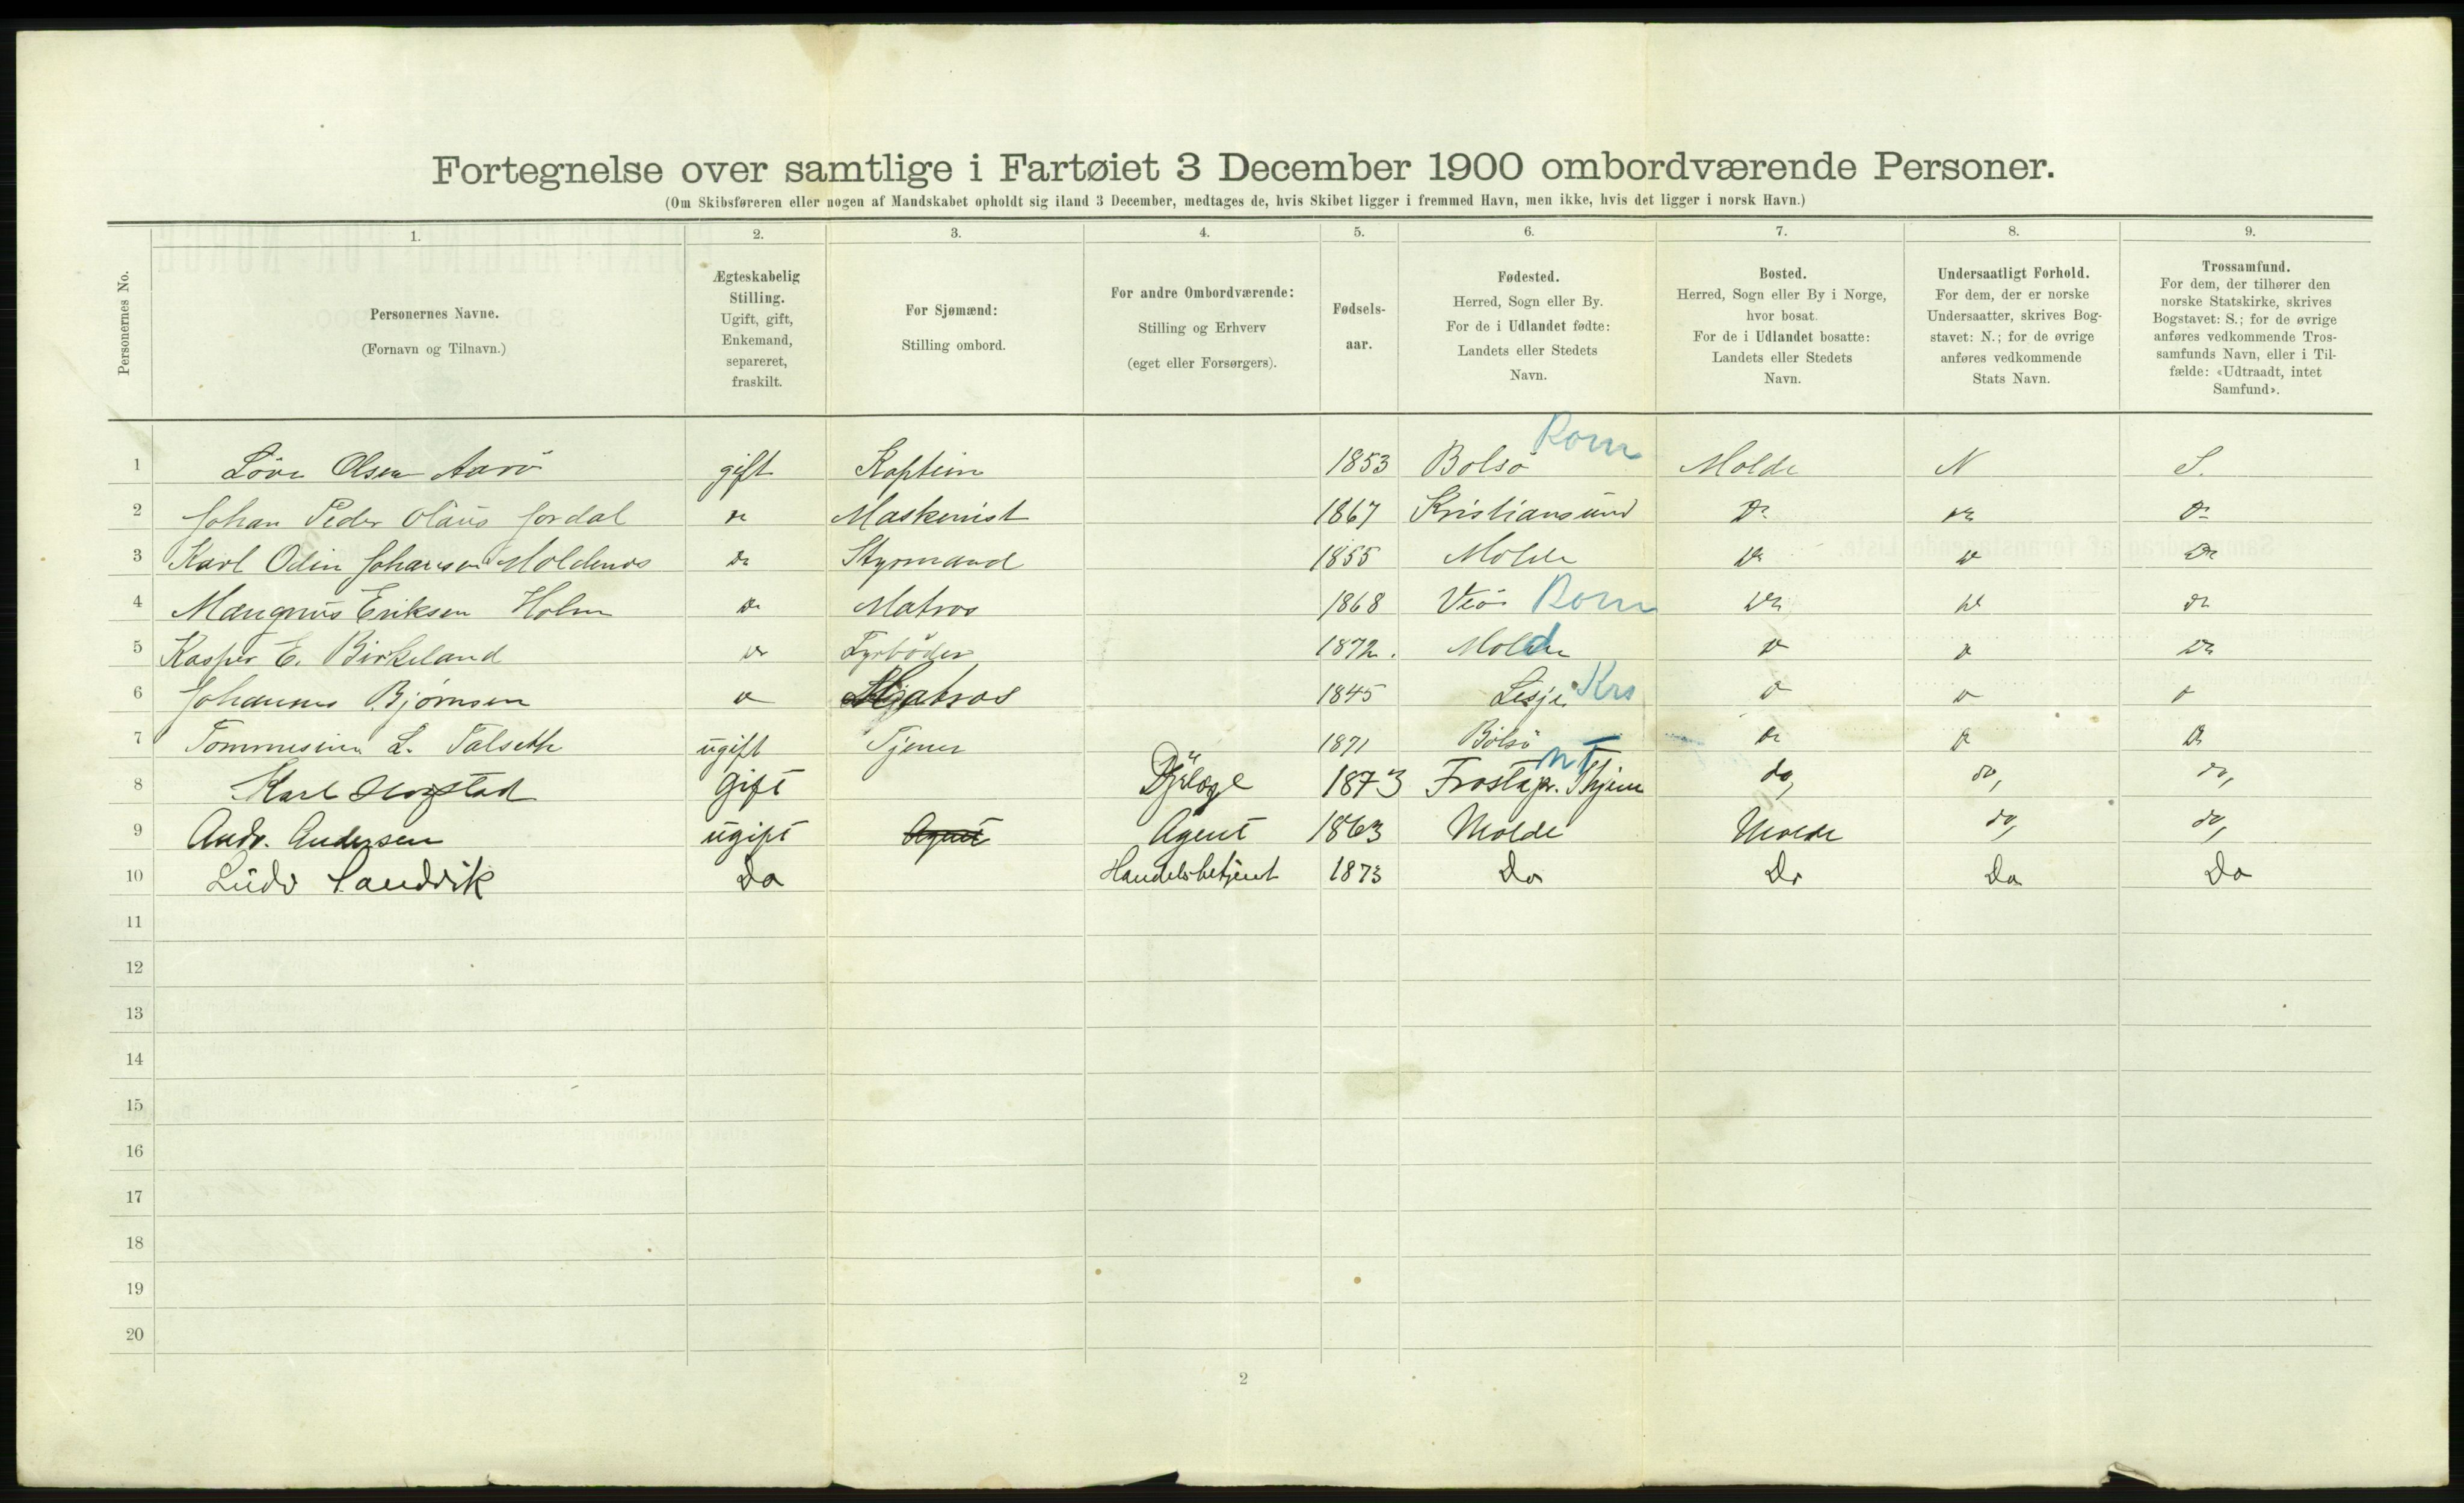 Fortegnelse over samtlige i Fartøiet 3 December 1900 ombordværende Personer.
(Om Skibsføreren eller nogen af Mandskabet opholdt sig iland 3 December, medtages de, hvis Skibet ligger i fremmed Havn, men ikke, hvis det ligger i norsk Havn.)
Personernes No.
1. 2. 3. 4. 5. 6. 7. 8. 9.
Personernes Navne.
(Fornavn og Tilnavn.)
Ægteskabelig
Stilling.
Ugift, gift,
Enkemand,
separeret,
fraskilt.
For Sjømænd:
Stilling ombord.
For andre Ombordværende:
Stilling og Erhverv
(eget eller Forsørgers).
Fødsels-
aar.
Fødested.
Herred, Sogn eller By.
For de i Udlandet fødte:
Landets eller Stedets
Navn.
Bosted.
Herred, Sogn eller By i Norge,
hvor bosat.
For de i Udlandet bosatte:
Landets eller Stedets
Navn.
Undersaatligt Forhold.
For dem, der er norske
Undersaatter, skrives Bog-
stavet: N.; for de øvrige
anføres vedkommende
Stats Navn.
Trossamfund.
For dem, der tilhører den
norske Statskirke, skrives
Bogstavet: S.; for de øvrige
anføres vedkommende Tros-
samfunds Navn, eller i Til-
fælde: «Udtraadt, intet
Samfund».
Rom
1 Olsen Aarö gift Kaptein 1853 Bolsö Molde N S.
2 Johan Peder Olaus Jordal do Maskenist 1867 Kristiansund do do do
3 Karl Odin Johansen Moldenos do Styrmand 1855 Molde do do do
4 Mangnus Eriksen Holm do Matros 1868 Veö Rom do do do
5 Kasper E. Birkeland do Fyrböder 1872. Molde do do do
6 Johannes Bjørnsen do Matros 1845 Lesje Krs do do do
7 Tommesine L. Talseth ugift Tjener 1871 Bolsö do do do
NT
8 Karl gift Dyrlæge 1873 Frosta pr. Thjem do, do, do,
9 Andr. Andersen ugift Agent Agent 1863 Molde Molde do, do,
10 Ludv Sandvik Do Handelsbetjent 1873 Do Do Do Do
11
12
13
14
15
16
17
18
19
20
2